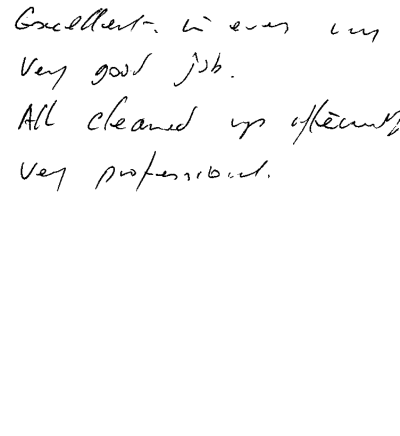 Excellent in every way
Very good job.
All cleaned up afterwards
Very professional.